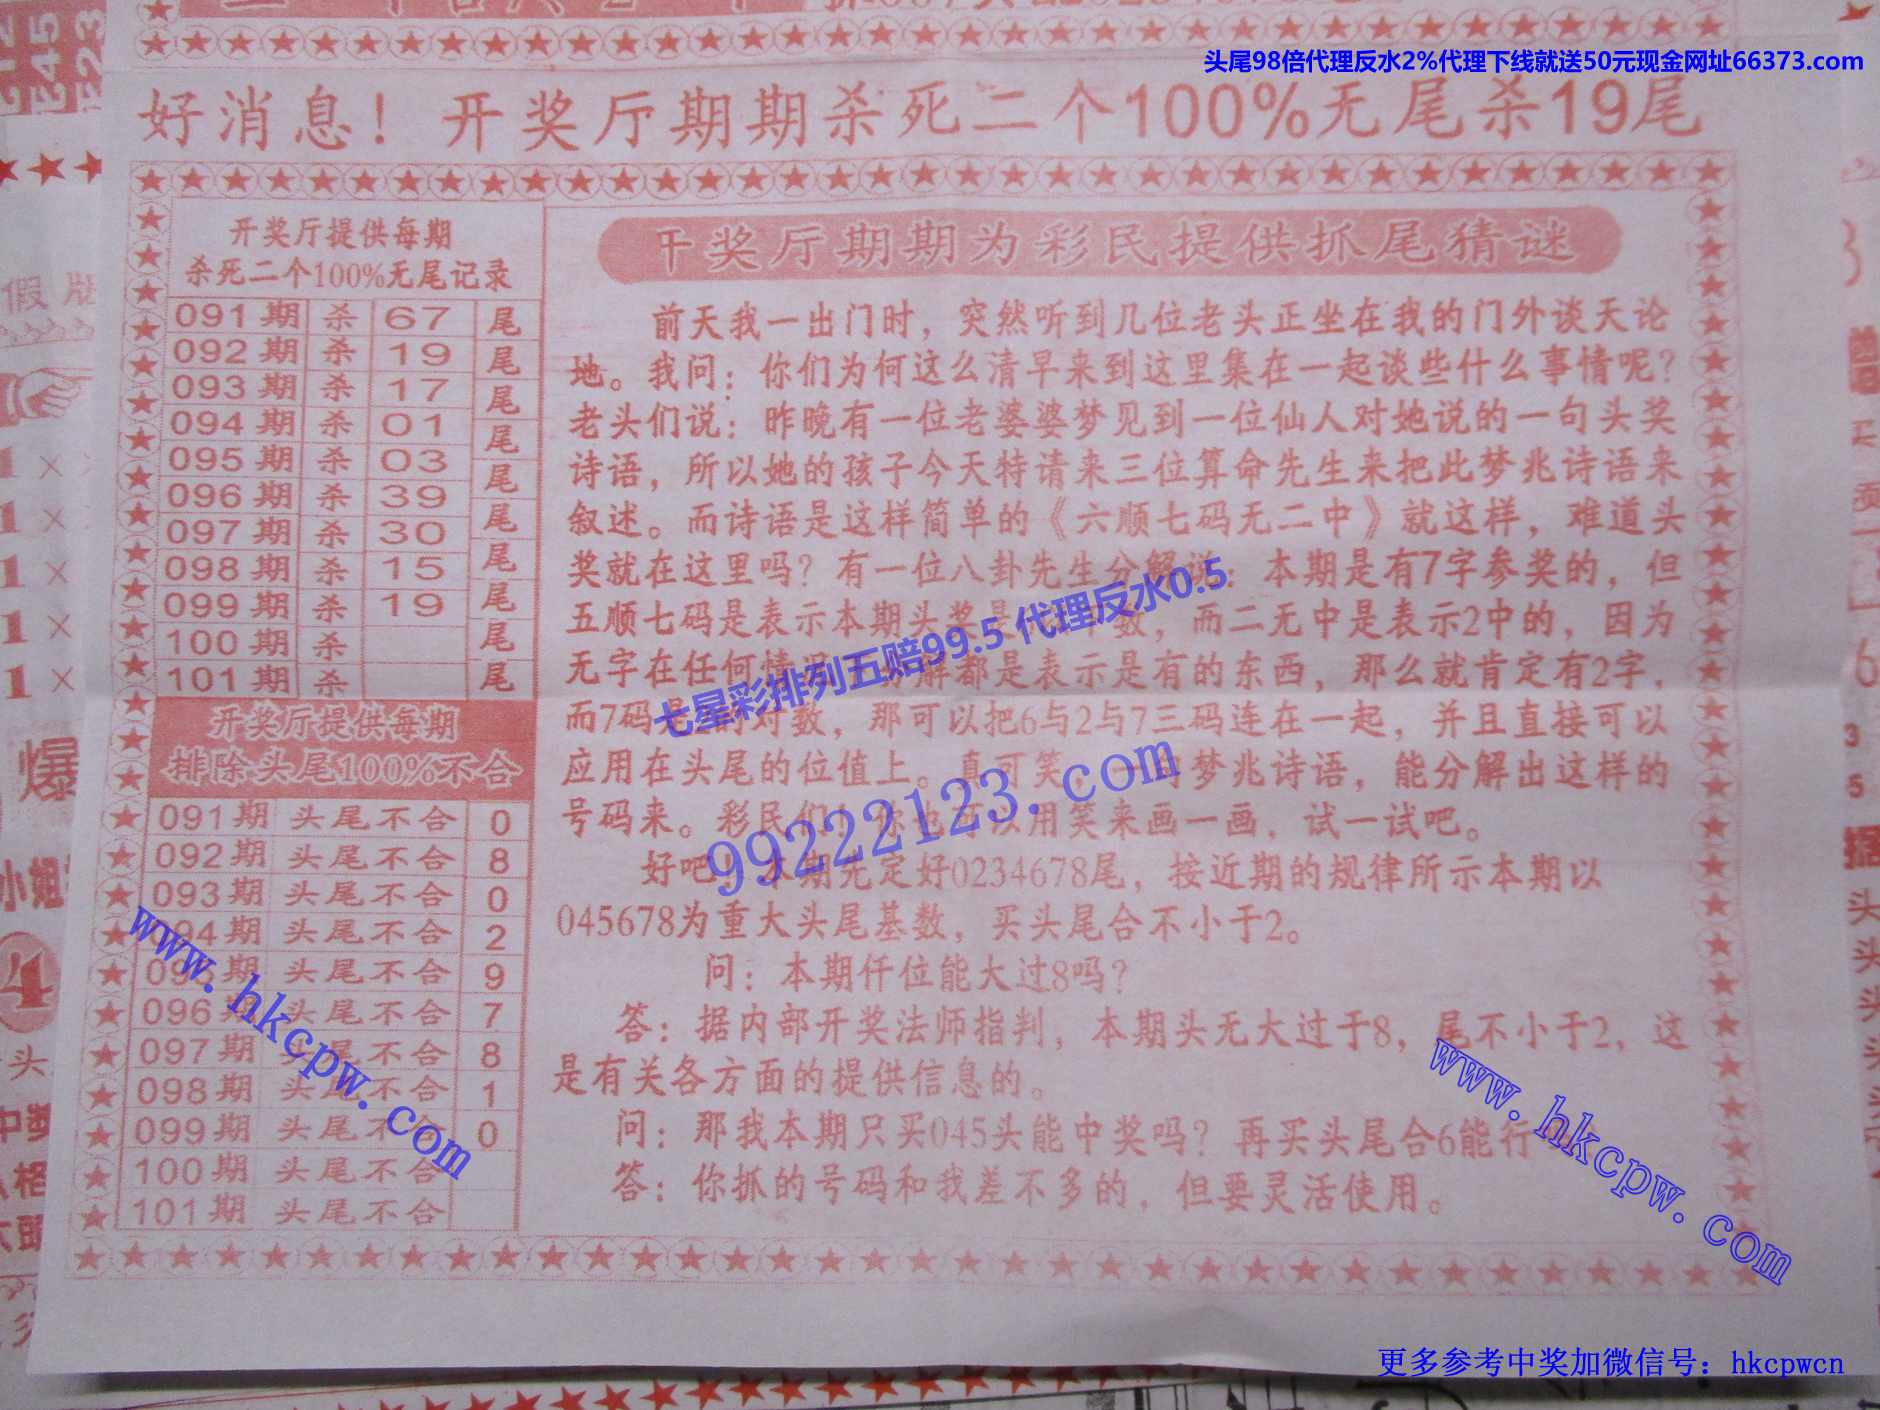 头尾98倍代理反水2%代理下线就送50元现金网址66373.com
好消息！开奖厅期期杀死二个100%无尾杀19尾
开奖厅提供每期
杀死二个100%无尾记录
091期 杀 67 尾
092期 杀 19 尾
093期 杀 17 尾
094期 杀 01 尾
095期 杀 03 尾
096期 杀 39 尾
097期 杀 30 尾
098期 杀 15 尾
099期 杀 19 尾
100期 杀 尾
101期 杀 尾
开奖厅提供每期
排除头尾100%不合
091期 头尾不合 0
092期 头尾不合 8
093期 头尾不合 0
094期 头尾不合 2
095期 头尾不合 9
096期 头尾不合 7
097期 头尾不合 8
098期 头尾不合 1
099期 头尾不合 0
100期 头尾不合
101期 头尾不合
奖厅期期为彩民提供抓尾猜谜
前天我一出门时，突然听到几位老头正坐在我的门外谈天论
地。我问：你们为何这么清早来到这里集在一起谈些什么事情呢？
老头们说：昨晚有一位老婆婆梦见到一位仙人对她说的一句头奖
诗语，所以她的孩子今天特请来三位算命先生来把此梦兆诗语来
叙述。而诗语是这样简单的《六顺七码无二中》就这样，难道头
奖就在这里吗？有一位八卦先生分解说：本期是有7字参奖的，但
五顺七码是表示本期头奖是 数，而二无中是表示2中的，因为
无字在任何情况 分解都是表示是有的东西，那么就肯定有2字，
而7码是 的对数，那可以把6与2与7三码连在一起，并且直接可以
应用在头尾的位值上。真可笑 一句梦兆诗语，能分解出这样的
号码来。彩民们！你也可以用笑来画一画，试一试吧。
好吧！本期先定好0234678尾，接近期的规律所示本期以
045678为重大头尾基数，买头尾合不小于2。
问：本期仟位能大过8吗？
答：据内部开奖法师指判，本期头无大过于8，尾不小于2，这
是有关各方面的提供信息的。
问：那我本期只买045头能中奖吗？再买头尾合6能行
答：你抓的号码和我差不多的，但要灵活使用。
七星彩排列五赔99.5 代理反水0.5
99222123.com
www.hkcpw.com
www.hkcpw.com
更多参考中奖加微信号：hkcpwcn